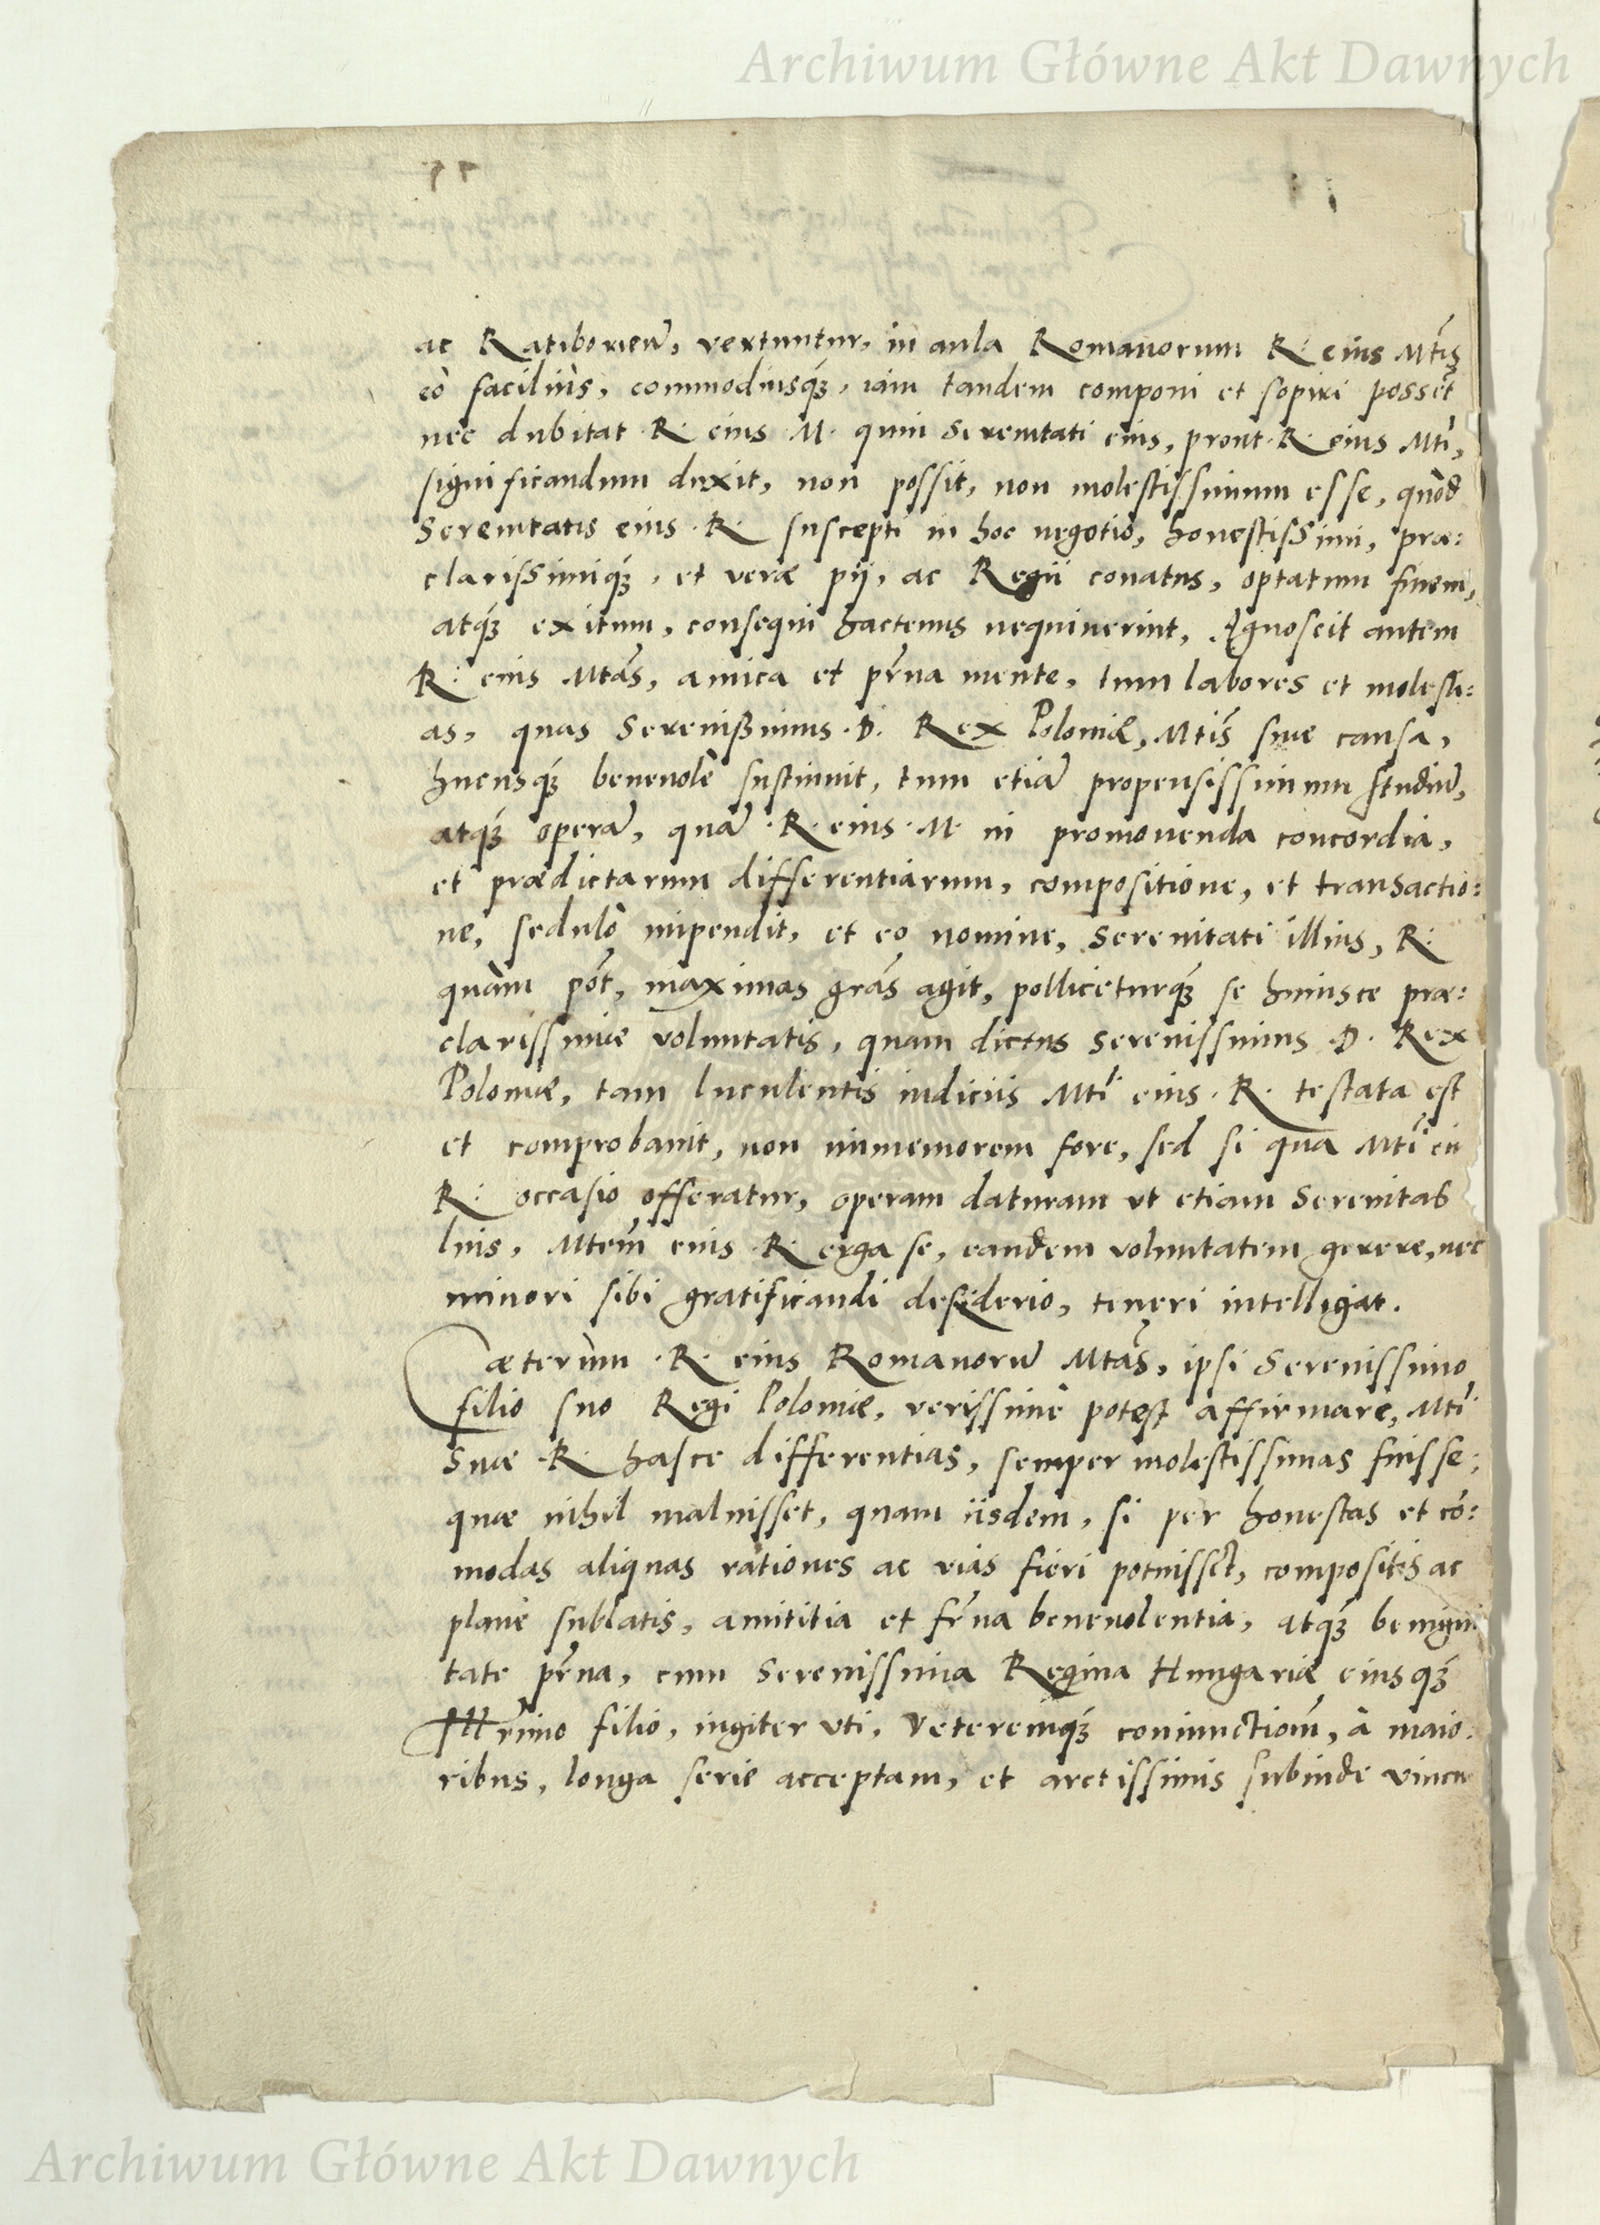 Archiwum Główne Akt Dawnych
ac Ratiborieñ, vertuntur, in aula Romanorum R: eius Mtis
eò faciliùs, commodiusq́, iam tandem componi et sopiri possẽt
nec dubitat R. eius M. quin Serenitati eius, prout R. eius Mti,
significandum duxit, non possit, non molestissimum esse, quòd
Serenitatis eius R. suscepti in hoc negotio, honestissimi, præ:
clarissimiq́, et veræ pij, ac Regii conatus, optatum finem,
atq́ exitum, consequi hactenus nequiverint, Agnoscit autem
R: eius Mtas, amica et pr̃na mente, tum labores et molesti:
as, quas Sereniſsimus D. Rex Poloniæ, Mtis suæ causa,
hucusq́ benevolè sustinuit, tum etiã propensissimum studiũ,
atq́ operã, quã R. eius M. in promovenda concordia,
et prædictarum differentiarum, compositione, et transactio:
ne, sedulò impendit, et eo nomine, Serenitati illius, R:
quàm põt, maximas grãs agit, polliceturq́ se huiusce præ:
clarissimæ voluntatis, quam dictus Serenissimus D. Rex
Poloniæ, tam luculentis indiciis Mti eius R. testata est
et comprobavit, non immemorem fore, sed si qua Mti
R: occasio offeratur, operam daturam ut etiam Serenitas
lius, Mtem eius R. erga se, eandem voluntatem gerere, nec
minori sibi gratificandi desiderio, teneri intelligat.
Cæterùm R. eius Romanorũ Mtas, ipsi Serenissimo
filio suo Regi Poloniæ, verissimè potest affirmare, Mti
Suæ R. hasce differentias, semper molestissimas fuisse,
quæ nihil maluisset, quam iisdem, si per honestas et cõ:
modas aliquas rationes ac vias fieri potuisset, compositis ac
planè sublatis, amititia et fr̃na benevolentia, atq́ benigni
tate pr̃na, cum Serenissima Regina Hungariæ eiusq́
Illr̃imo filio, iugiter uti, Veteremq́ coniunctionẽ, à maio:
ribus, longa serie acceptam, et arctissimis subinde vincu
Archiwum Główne Akt Dawnych